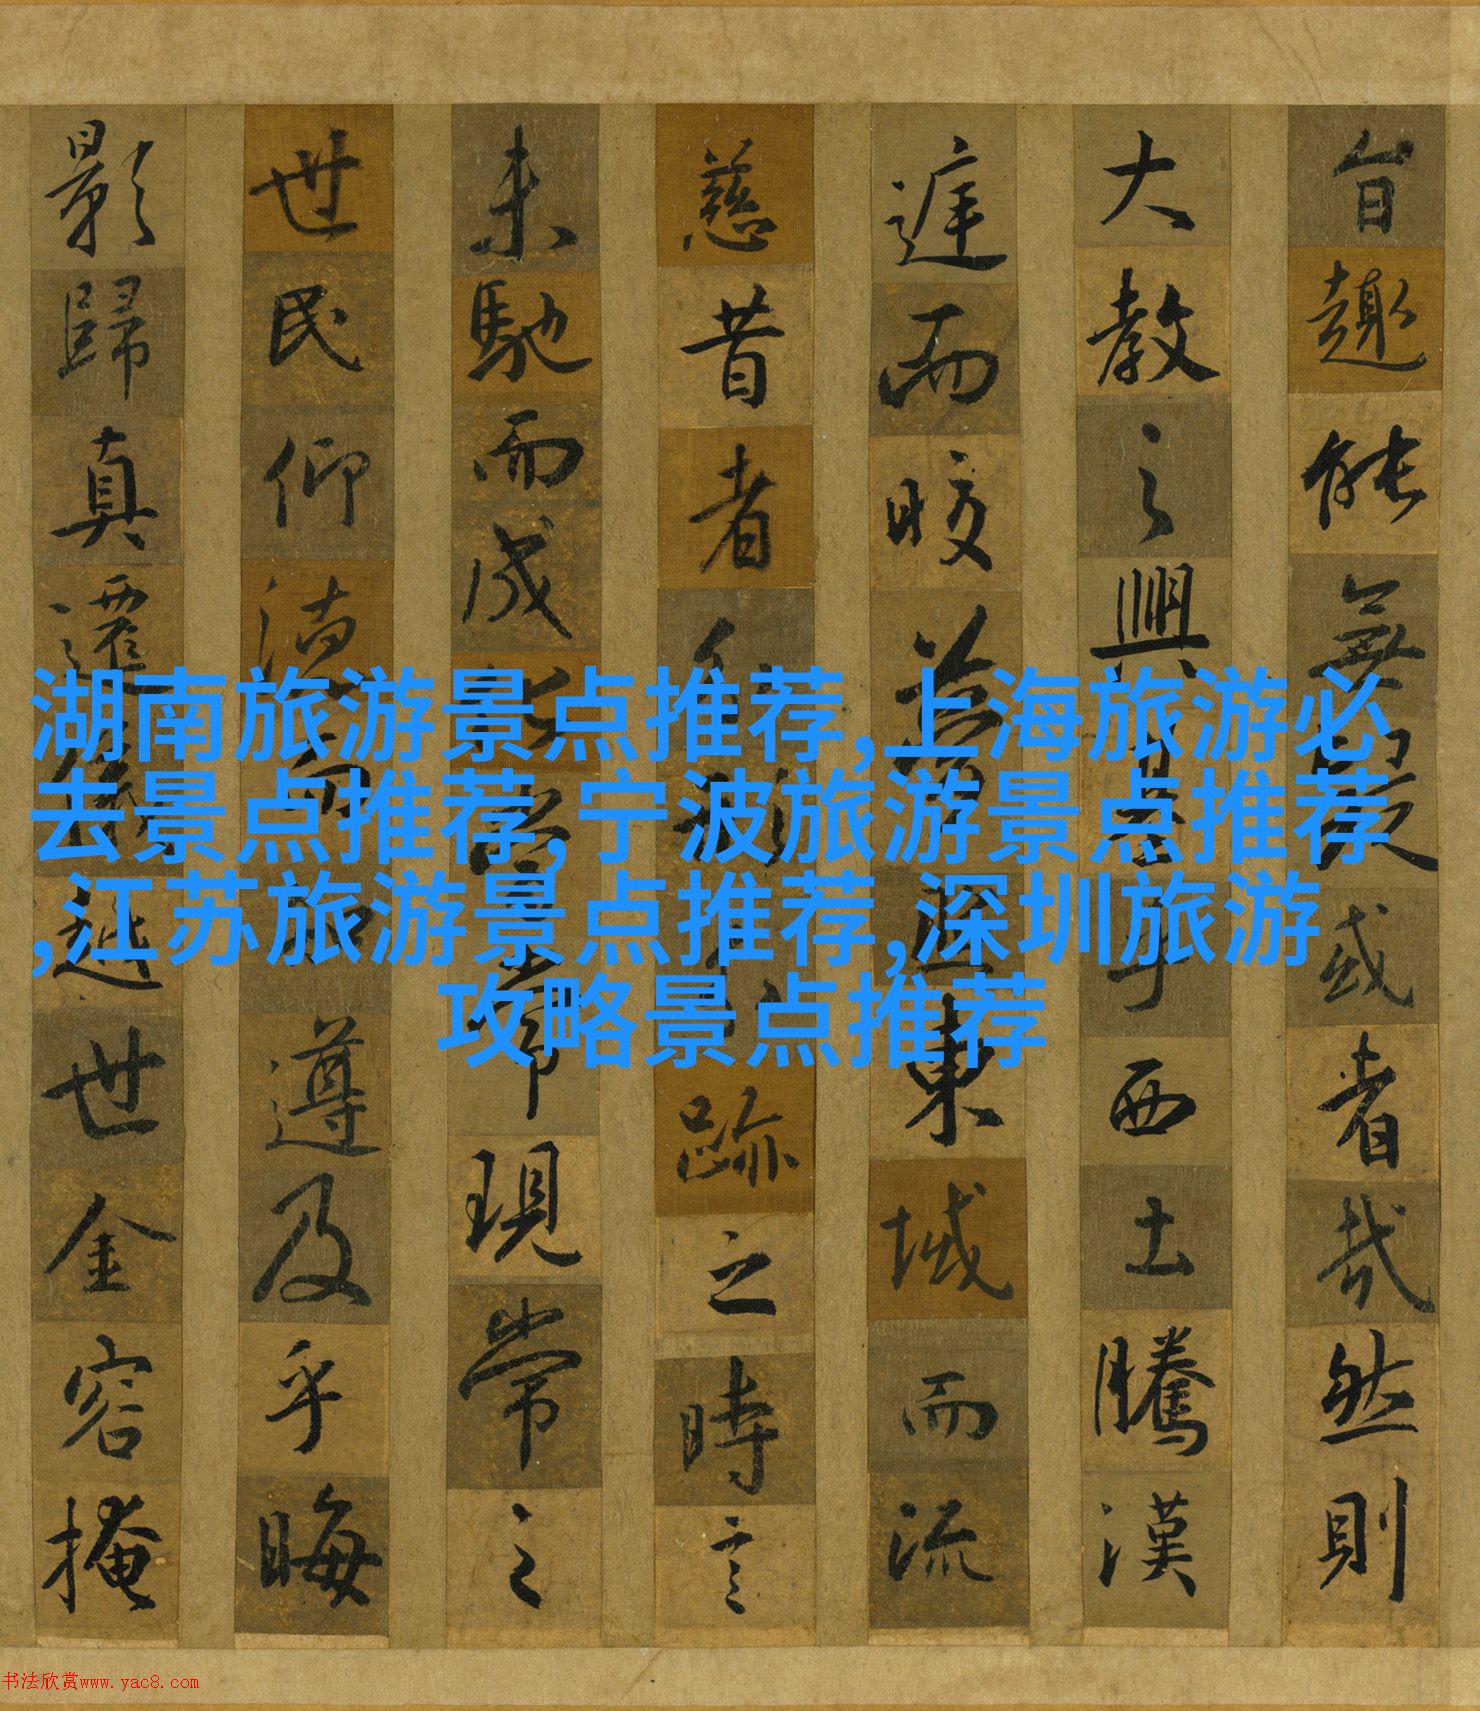 旨趣能無疑或者哉然則
大教之興乎西土騰漢
庭而皎夢照東域而流
慈昔者跡之時言
未馳而成常現常之
世民仰而遵及乎晦
影歸真遷儀越世金容掩
湖南旅游景点推荐,上海旅游必
去景点推荐,宁波旅游景点推荐
,江苏旅游景点推荐,深圳旅游
攻略景点推荐
书法欣赏www.yac8.com